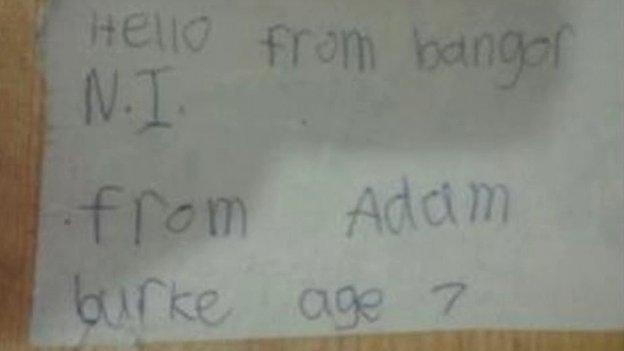 Hello from bangor
N.I.
from Adam
burke age 7